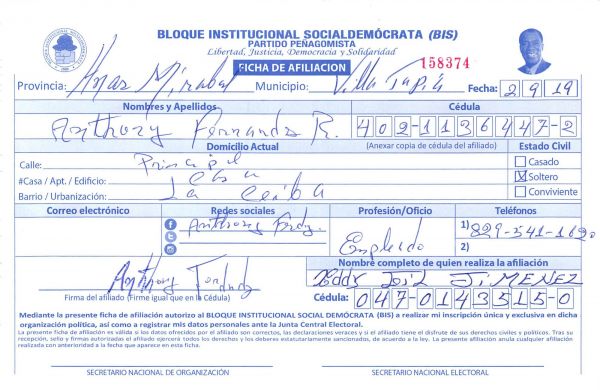 BLOQUE INSTITUCIONAL SOCIALDEMÓCRATA (BIS)
PARTIDO PEÑAGOMISTA
Libertad, Justicia, Democracia y Solidaridad
FICHA DE AFILIACION 158374
Provincia: Hnas Mirabal Municipio: Villa Tapia Fecha: 2 9 19
Nombres y Apellidos Cédula
Anthony Fernando R. 402-1136447-2
Domicilio Actual (Anexar copia de cédula del afiliado) Estado Civil
Calle: Principal Casado
#Casa / Apt. / Edificio: Casa X Soltero
Barrio / Urbanización: La Ceiba Conviviente
Correo electrónico Redes sociales Profesión/Oficio Teléfonos
Anthony Empleado 1) 829-541-1620
2)
Nombre completo de quien realiza la afiliación
Anthony Eddy José JIMENEZ
Firma del afiliado (Firme igual que en la Cédula) Cédula: 047-0143515-0
Mediante la presente ficha de afiliación autorizo al BLOQUE INSTITUCIONAL SOCIAL DEMÓCRATA (BIS) a realizar mi inscripción única y exclusiva en dicha
organización política, así como a registrar mis datos personales ante la Junta Central Electoral.
La presente ficha de afiliación es válida si los datos ofrecidos por el afiliado son correctos, las declaraciones veraces y si el afiliado tiene el disfrute de sus derechos civiles y políticos. Tras su
recepción, sello y firmas autorizadas el afiliado ejercerá todos los derechos y los deberes estatutariamente sancionados, de acuerdo a la ley. La presente afiliación anula cualquier afiliación
realizada con anterioridad a la fecha que aparece en esta ficha.
SECRETARIO NACIONAL DE ORGANIZACIÓN SECRETARIO NACIONAL ELECTORAL